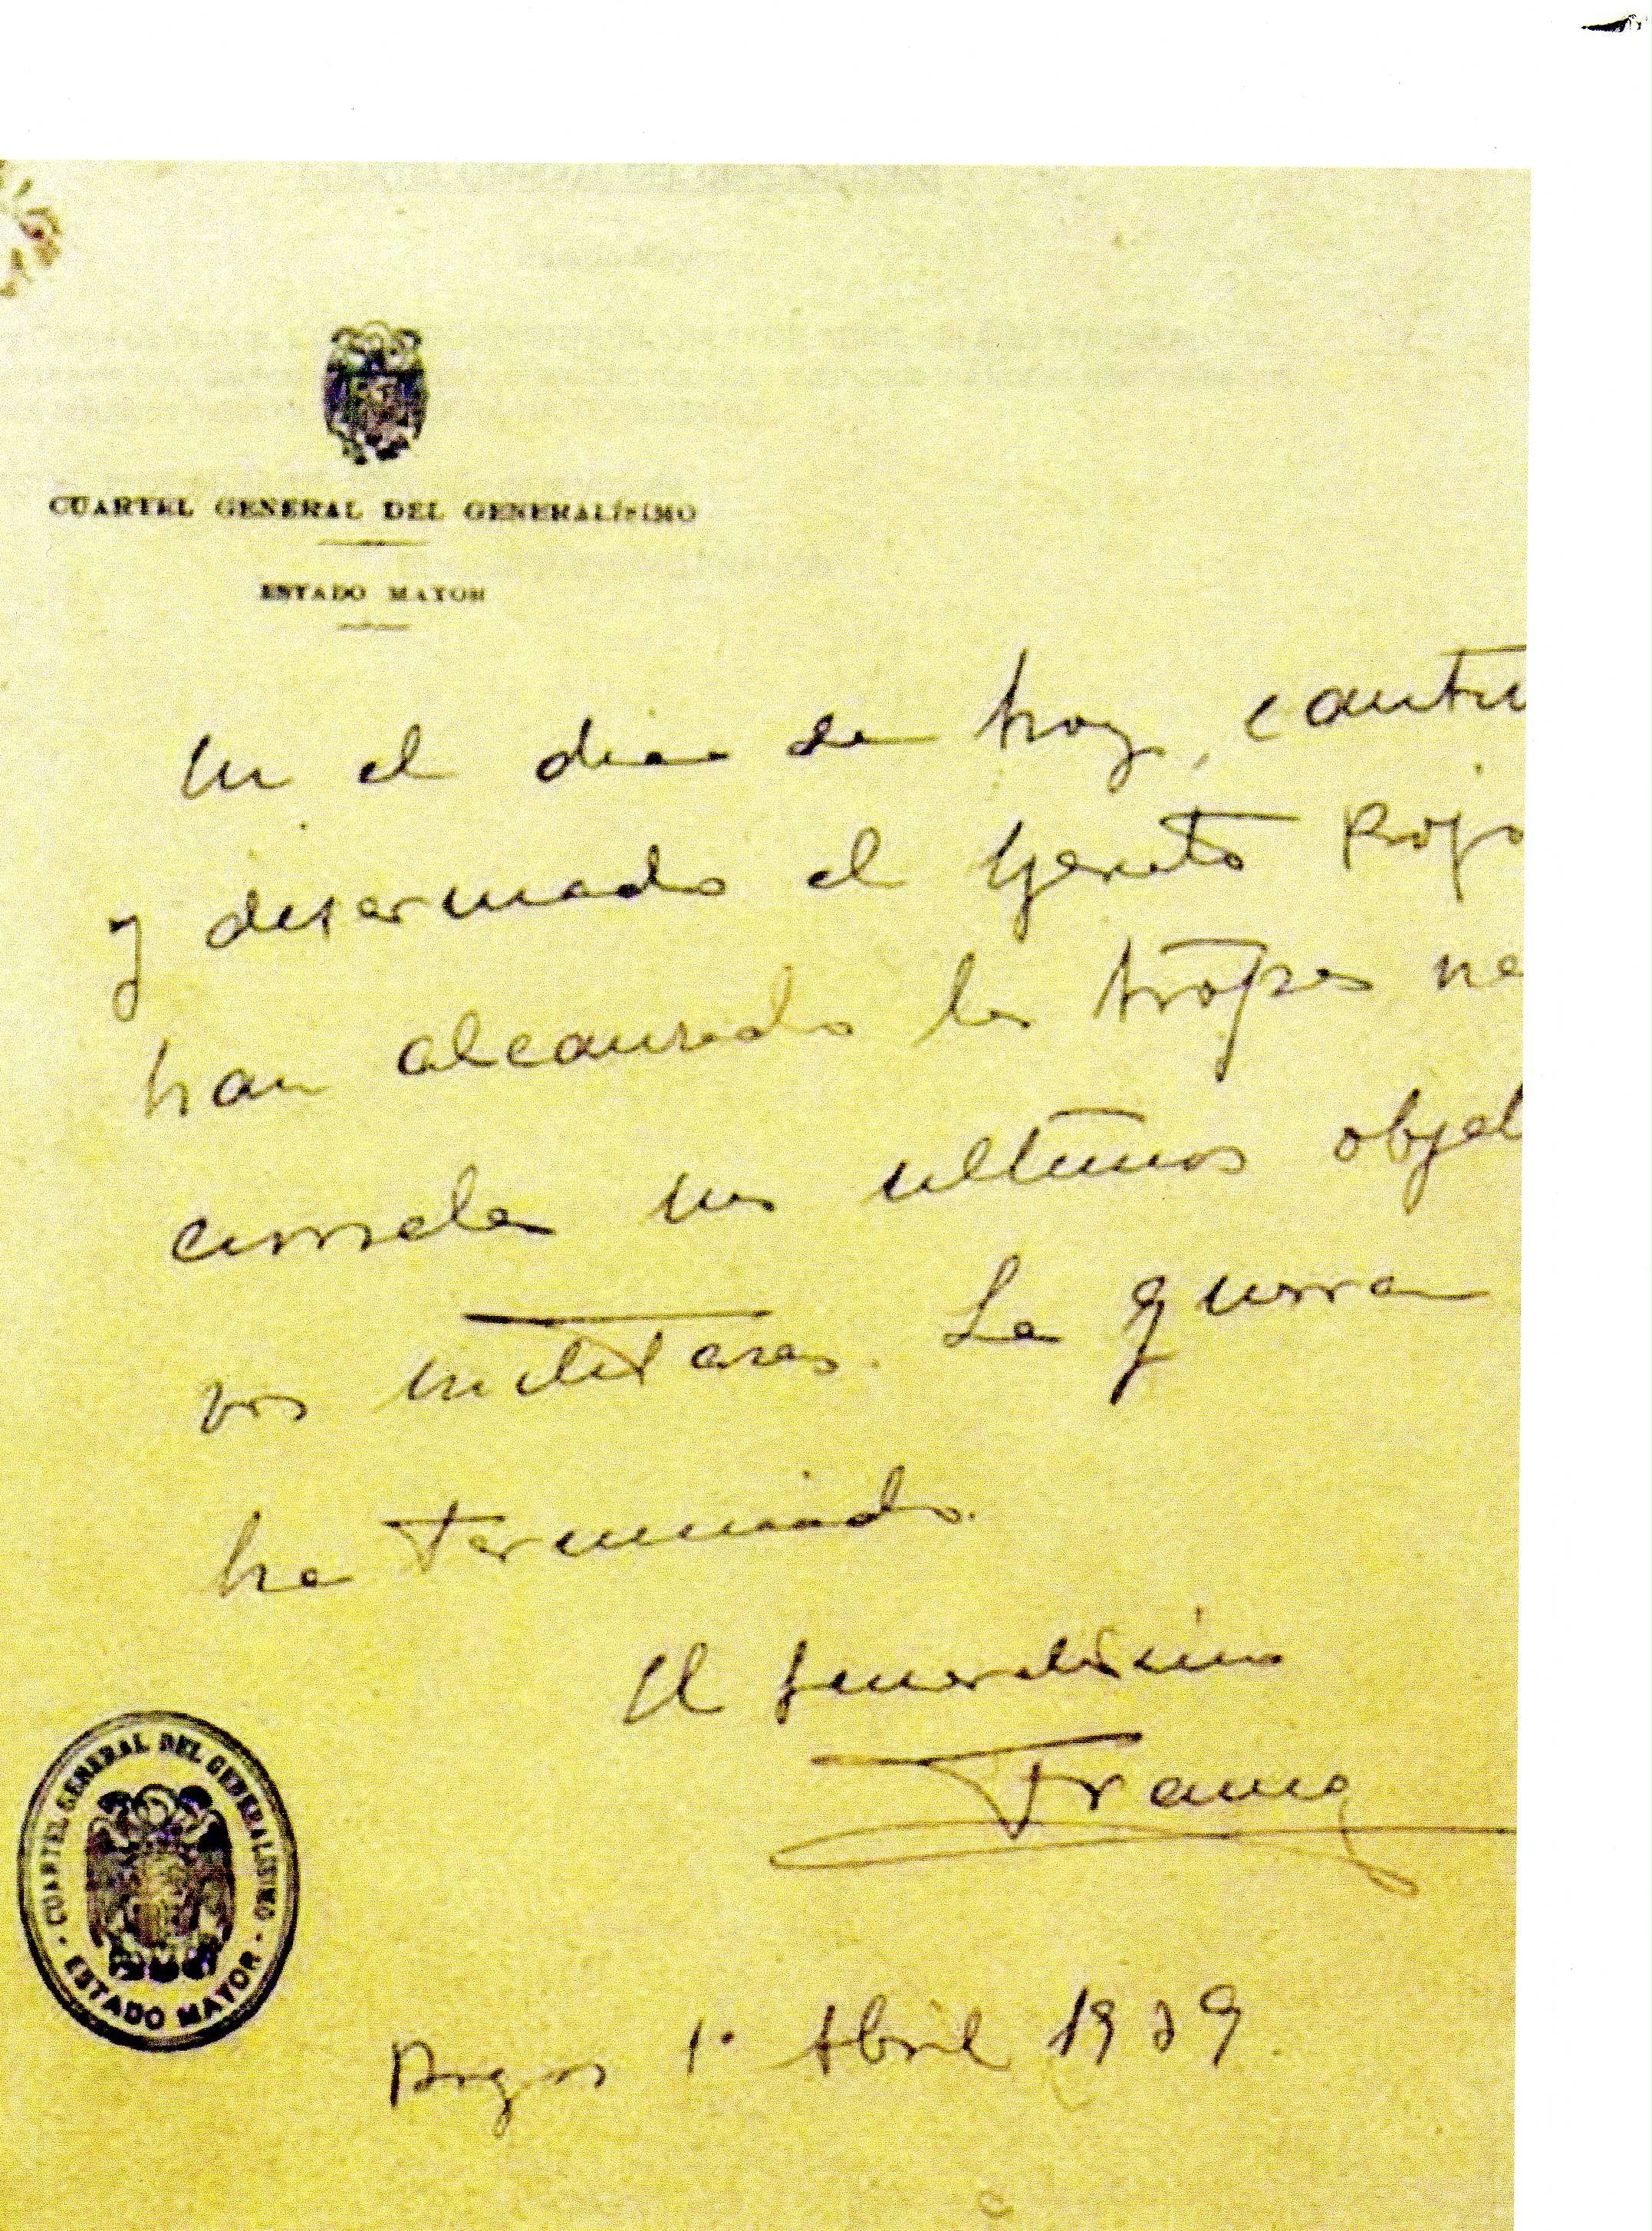 CUARTEL GENERAL DEL GENERALÍSIMO
ESTADO MAYOR
En el dia de hoy, cautiv
y desarmado el Ejercito Rojo
han alcanzado las tropas na
cionales sus ultimos objet
vos militares. La guerra
ha terminado.
El Generalísimo
Franco
CUARTEL GENERAL DEL GENERALISIMO
· ESTADO MAYOR ·
Burgos 1º Abril 1939